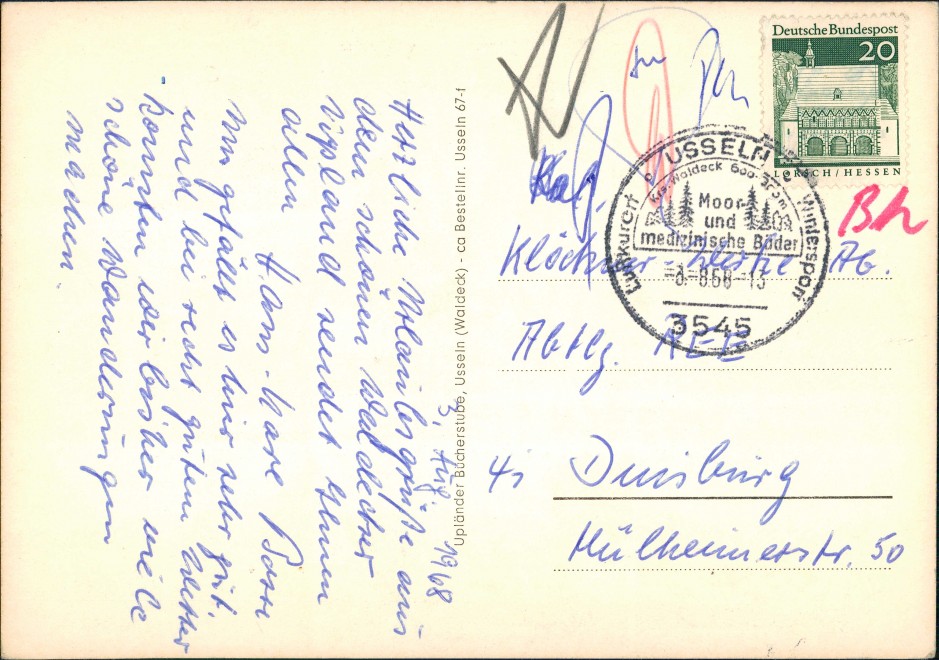 3. Aug. 1968
Herzliche Urlaubsgrüße aus
dem schönen Waldecker
Upland sendet Ihnen
allen
Hans-
Mir gefällt es hier sehr gut.
und bei recht gutem Wetter
konnten wir bisher viele
schöne Wanderungen
machen.
Upländer Bücherstube, Usseln (Waldeck) - ca Bestellnr. Usseln 67-f
Deutsche Bundespost
20
LORSCH/HESSEN
USSELN
Krs. Waldeck 600-
Moor-
und
medizinische Bäder
Luftkurort
Wintersport
-8.68-13
3545
Klöckner-Werke AG.
Abtlg.
41 Duisburg
Mülheimerstr. 50